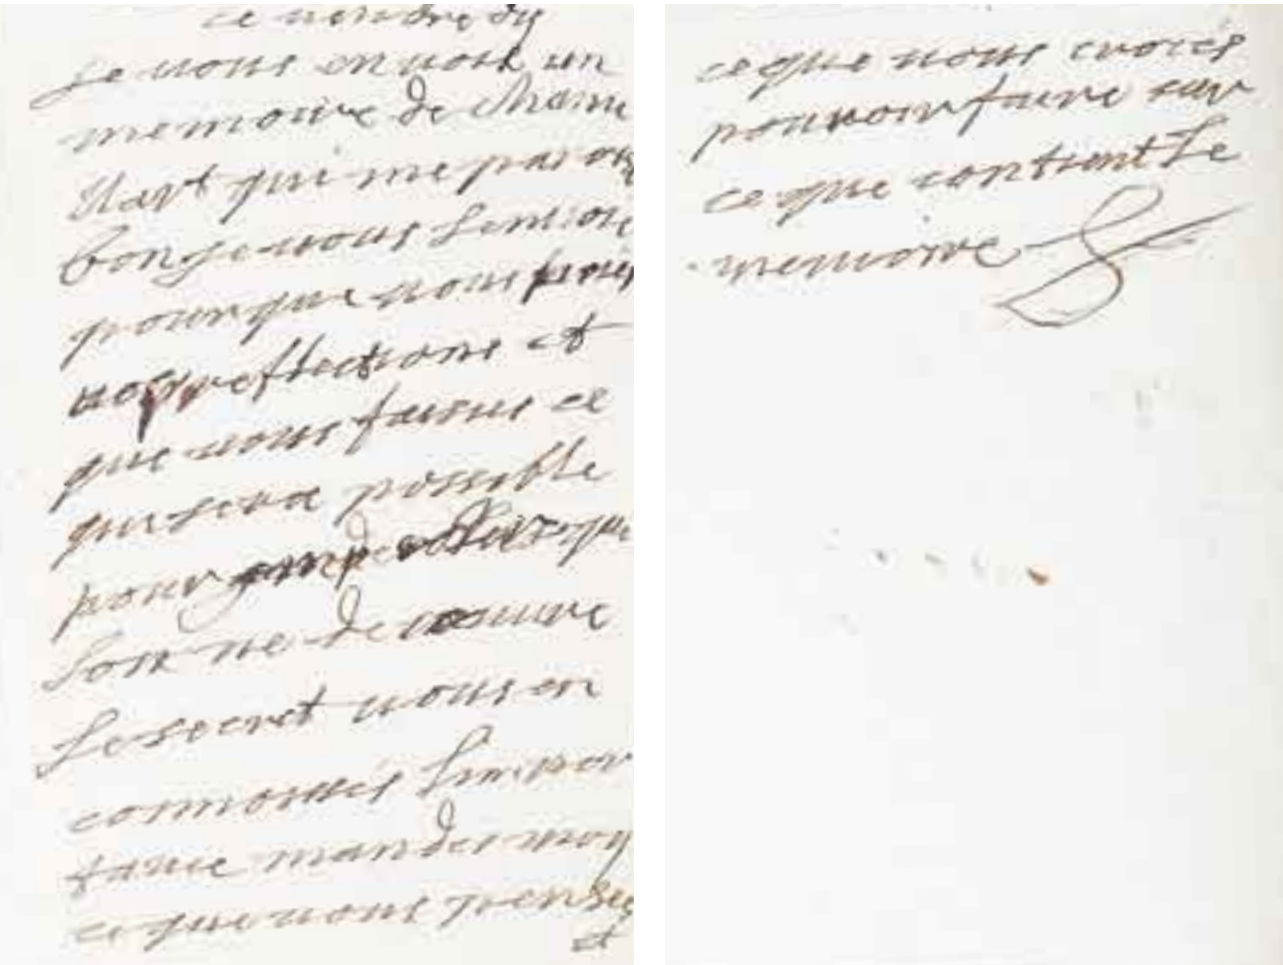 ce vendredy
Je vous envoie un
memoire de Chami
llart qui me parois
bon je vous lenvoie
pour que vous
vos reflections et
que vous faisies ce
qui sera possible
pour que
lon ne decouvre
le secret vous en
connoissés linpor
tance mandes moy
ce que vous pensés
et
ce que vous croiés
pouvoir faire sur
ce que contient le
memoire